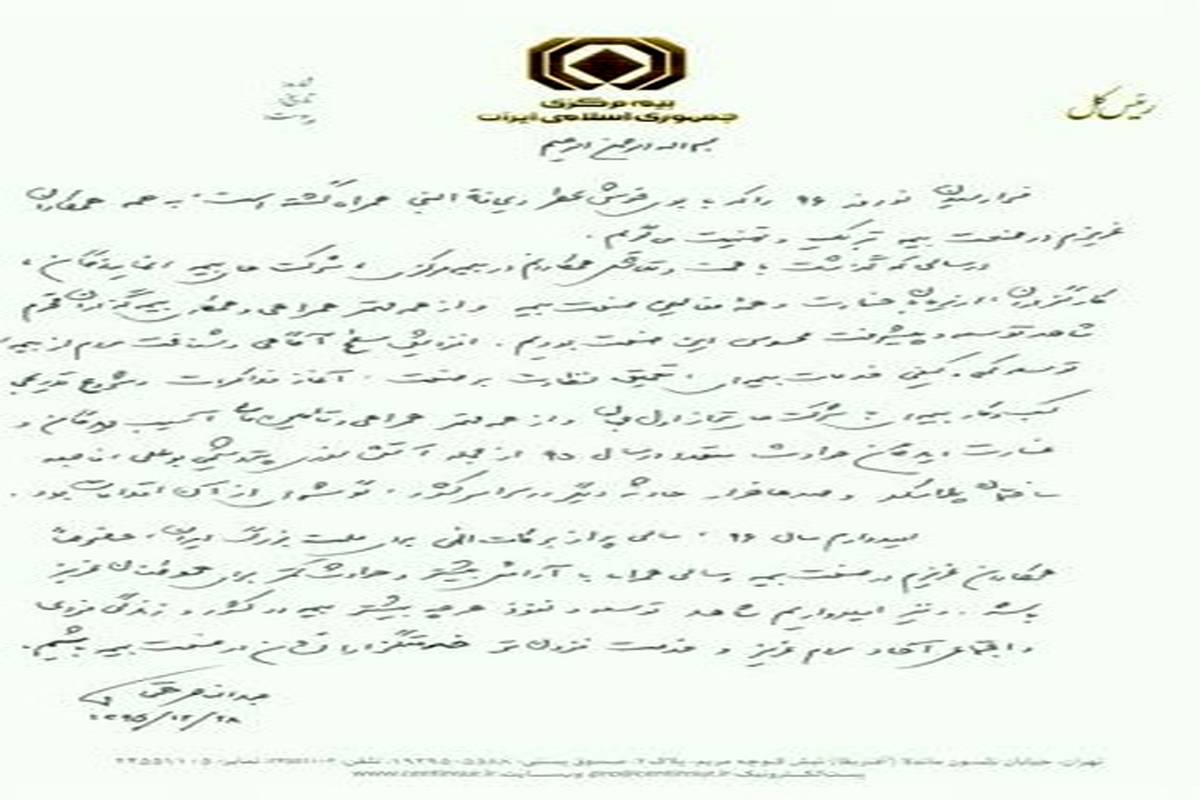 بیمه مرکزی
جمهوری اسلامی ایران
رئیس کل
شماره:
تاریخ:
پیوست:
بسم الله الرحمن الرحیم
فرارسیدن نوروز ۹۶ را که با بوی خوش عطر ریحانة النبی همراه گشته است، به همه همکاران
عزیزم در صنعت بیمه تبریک و تهنیت می گویم.
در سالی که گذشت با همت و تلاش همکارانم در بیمه مرکزی، شرکت های بیمه، نمایندگان،
کارگزاران، ارزیابان خسارت و همه فعالین صنعت بیمه و از همه مهمتر همراهی و همکاری بیمه گذاران محترم
شاهد توسعه و پیشرفت محسوس این صنعت بودیم. افزایش سطح آگاهی و شناخت مردم از بیمه،
توسعه کمی و کیفی خدمات بیمه ای، تعمیق نظارت بر صنعت، آغاز مذاکرات و شروع تدریجی
کسب و کار بیمه ای با شرکت های تراز اول جهان و از همه مهمتر همراهی و تامین مالی آسیب دیدگان و
خسارت دیدگان حوادث متعدد در سال ۹۵ از جمله آتش سوزی پتروشیمی بوعلی، فاجعه
ساختمان پلاسکو و صدها هزار حادثه دیگر در سراسر کشور، گوشه ای از آن اقدامات بود.
امیدوارم سال ۹۶، سالی پر از برکات الهی برای ملت بزرگ ایران، خصوصاً
همکاران عزیزم در صنعت بیمه و سالی همراه با آرامش بیشتر و حوادث کمتر برای هموطنان عزیز
باشد. و نیز امیدواریم شاهد توسعه و نفوذ هرچه بیشتر بیمه در کشور و زندگی فردی
و اجتماعی آحاد مردم عزیز و خدمت فزون تر خدمتگزارانشان در صنعت بیمه باشیم.
۱۳۹۵/۱۲/۲۸